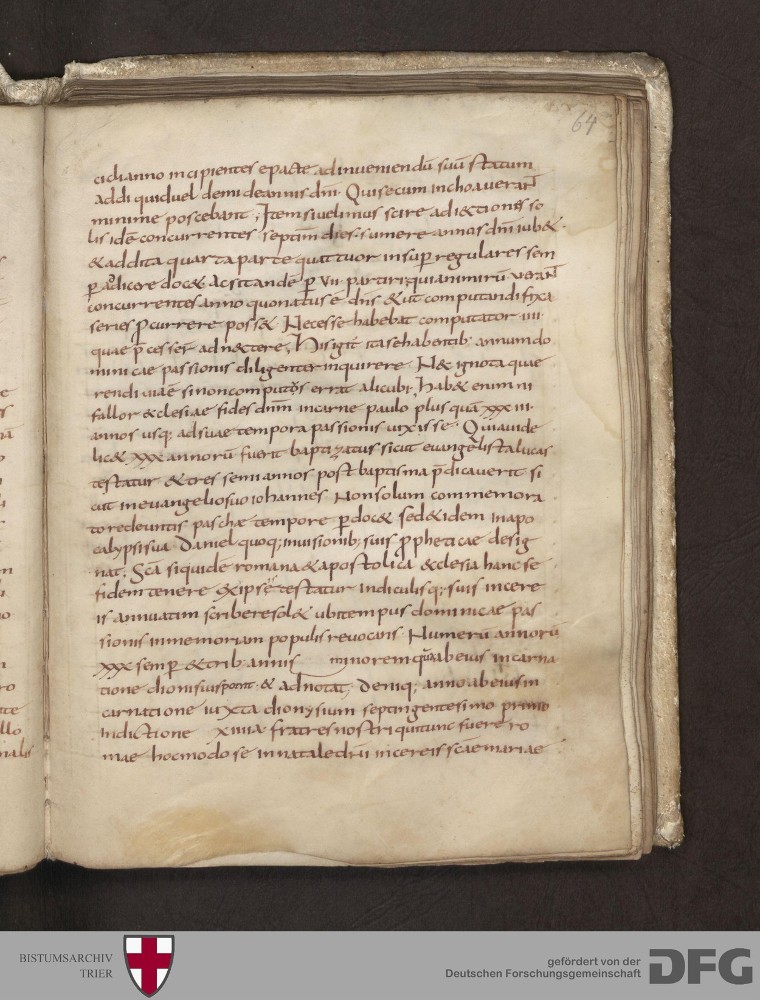 64
cidi anno incipientes epacte ad inueniendū suū statum
addi quid uel demi de annis dn̄i. Qui secum inchoauerant
minime poscebant; Item si uelimus scire adiectiones so
lis idē concurrentes septim dies sumere annos dn̄i iub&
& addita quarta parte quattuor insup regulares sem
p adicere doc& ac sic tandē p VII partiri; quia nimirū uerant
concurrentes anno quo natus ē dn̄s & ut computandi fixa
series p currere poss& Necesse habebat computator IIII
quae p̄cesser adnectere, His igit ita se habentib; annum do
minicae passionis diligenter inquirere N& ignota quae
rendi uiaē si non computs errat alicubi, Hab& enim ni
fallor ecclesiae fides dn̄m in carne paulo plus quā XXXIII
annos usq; ad suae tempora passionis uixisse. Quia uide
lic& XXX annorū fuerit baptizatus sicut euangelista lucas
testatur & tres semi annos post baptisma p̄dicauerit si
cut in euangelio suo iohannes Non solum commemora
to redeuntis paschae tempore pdoc& sed & idem in apo
calypsi sua Daniel quoq; in uisionib; suis ppheticae desig
nat. Scā siquidē romana & apostolica ecclesia hanc se
fidem tenere & ipse testatur indiculis q; suis in cere
is annuatim scribere sol& ubi tempus dominicae pas
sionis in memoriam populis reuocans Numerū annorū
XXX semp & trib; annis minorem quā ab eius incarna
tione dionisius ponit & adnotat, Deniq; anno ab eius in
carnatione iuxta dionysium septingentesimo primo
Indictione XIIIIa fratres nostri qui tunc fuere ro
mae hoc modo se in natale dn̄i in cereis scae mariae
BISTUMSARCHIV
TRIER
gefördert von der
Deutschen Forschungsgemeinschaft
DFG